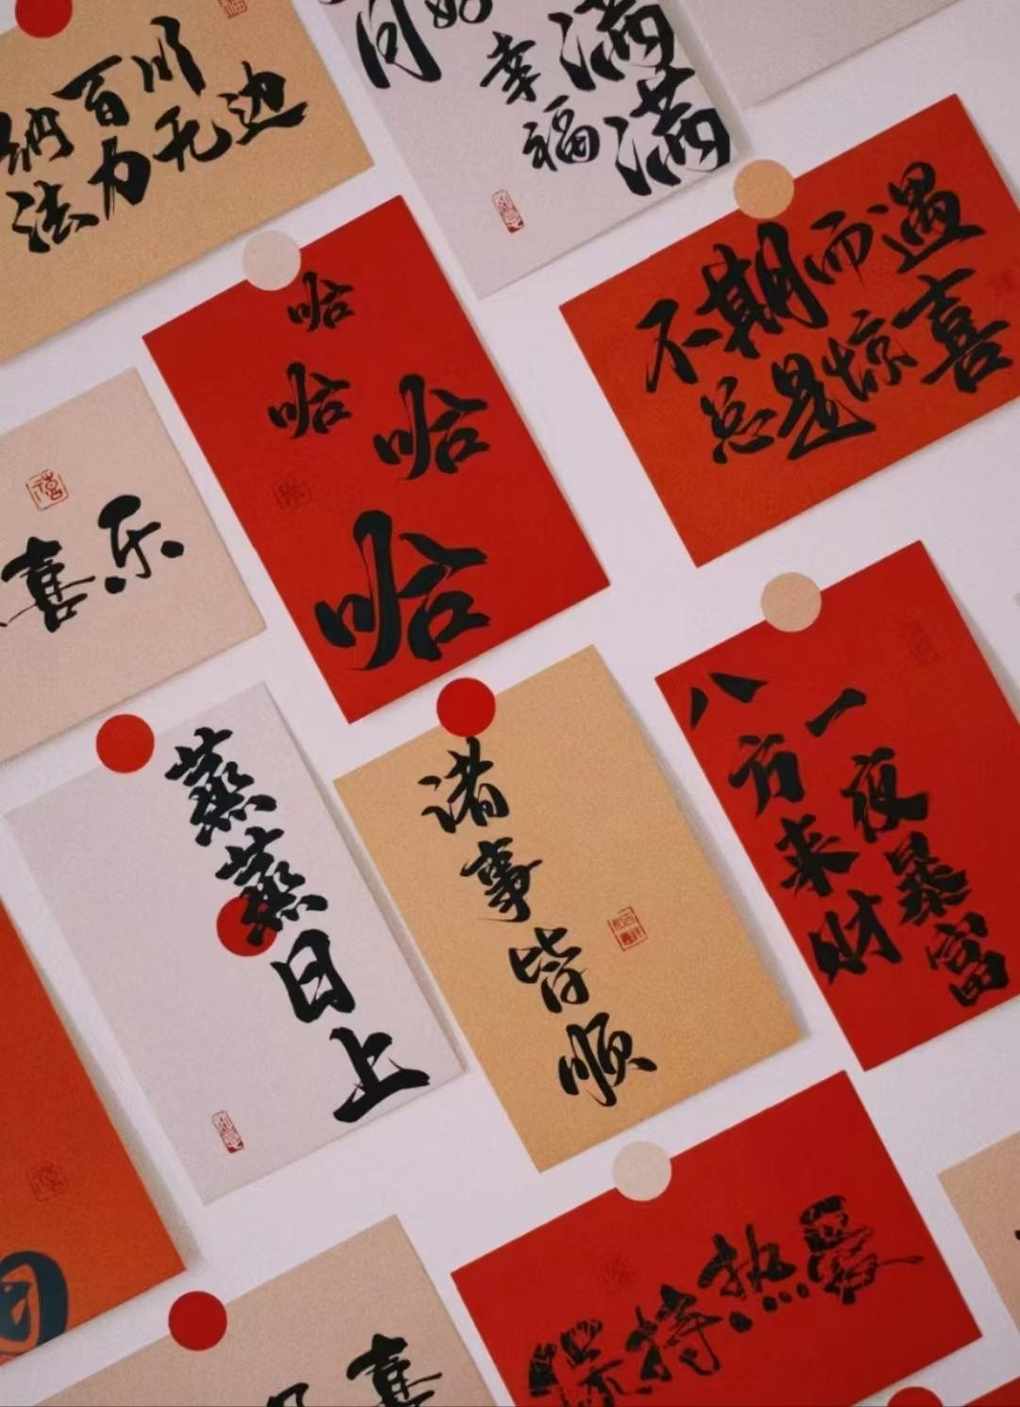 纳百川
法力无边
幸福
满满
哈
哈哈
哈
不期而遇
总是惊喜
喜乐
蒸蒸日上
诸事皆顺
一夜暴富
八方来财
保持热爱
喜